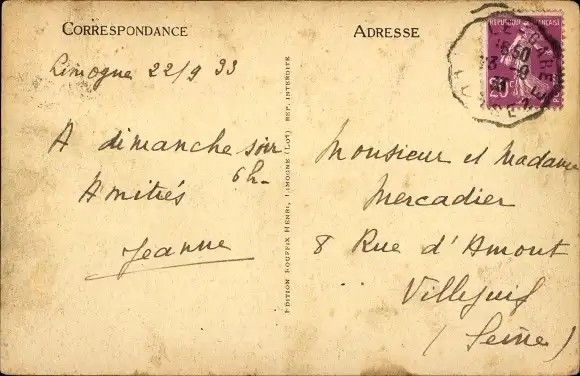 CORRESPONDANCE
Limogne 22/9 33
A dimanche soir
6h-
Amitiés
Jeanne
EDITION SOUFFIX HENRI, LIMOGNE (LOT) REP. INTERDITE
ADRESSE
REPUBLIQUE FRANÇAISE
20c
Monsieur et Madame
Mercadier
8 Rue d'Amont
Villejuif
(Seine)